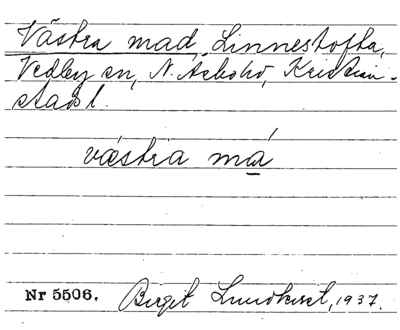 Västra mad, Linnestofta,
Vedby sn, N. Åsbo hd, Kristian-
stads l.
västra má
Nr 5506. Birgit Lundkvist, 1937.